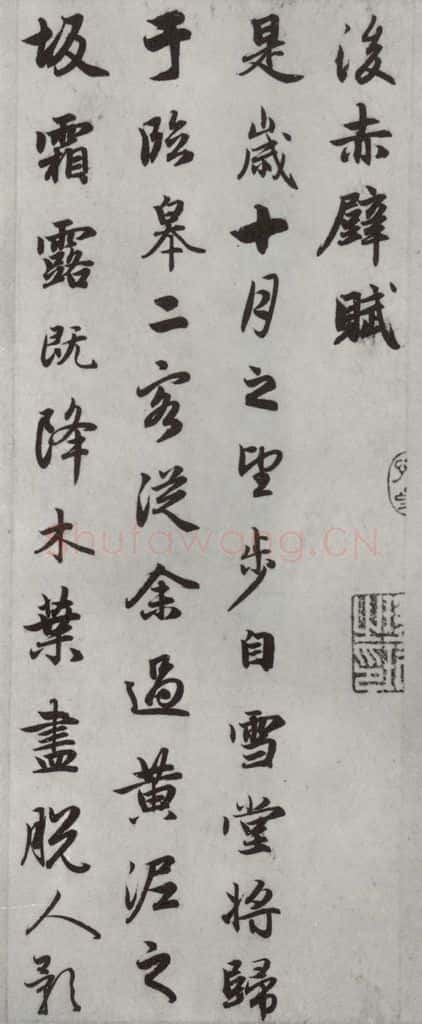 後赤壁賦
是歳十月之望步自雪堂將歸
于臨皋二客從余過黃泥之
坂霜露既降木葉盡脫人影
Shufawang.CN